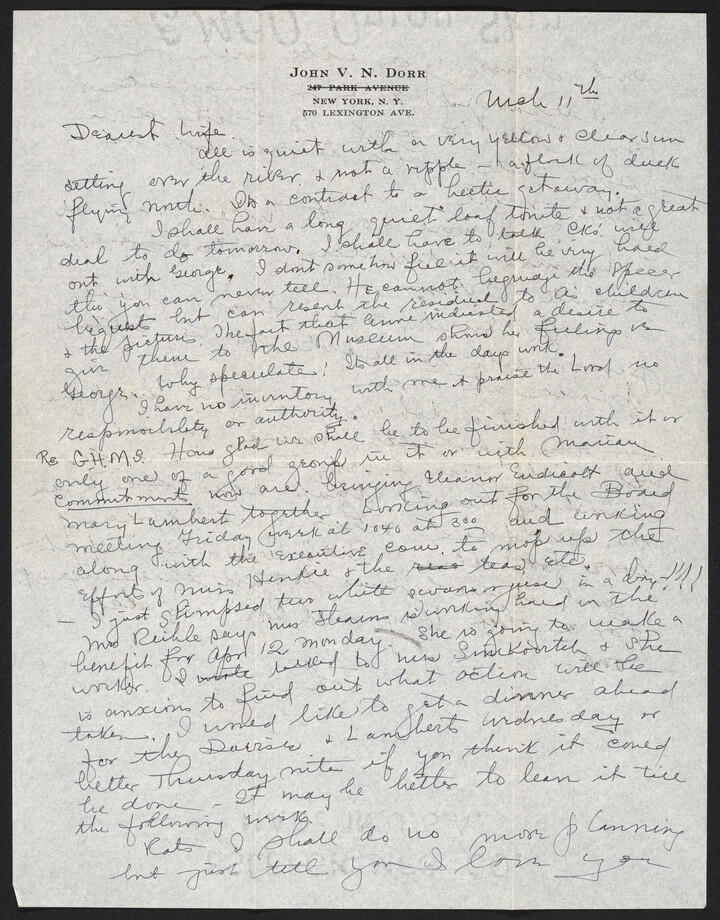 JOHN V. N. DORR
247 PARK AVENUE
NEW YORK, N. Y.
570 LEXINGTON AVE.
Mch 11th
Dearest Wife.
All is quiet with a very yellow & clear sun
setting over the river & not a ripple – a flock of duck
flying north. Its a contrast to a hectic getaway.
I shall have a long quiet loaf tonite & not a great
deal to do tomorrow. I shall have to talk CKs will
out with George. I dont somehow feel it will be very hard
tho you can never tell. He cannot begrudge the Speer
bequest but can resent the residual to as children
& the picture. The fact that Anne indicated a desire to
give them to the Museum shows her feelings vs
George. Why speculate! Its all in the days work.
I have no inventory with me & praise the Lord no
responsibility or authority.
Re G.H.M.S. How glad we shall be to be finished with it or
only one of a good group in it or with Marian
Commitments now are bringing Eleanor Endicott and
Mary Lambert together Looking out for the Board
meeting Friday week at 1040 at 300 and working
along with the executive com. to mop up the
efforts of Miss Henkie & the teas, etc.
– I just glimpsed two white swans in a day!!!!
Mrs Reihle says Mrs Stearns is working hard in the
benefit for Apr 12 Monday. She is going to make a
worker. I wrote talked to Mrs Simkovitch & she
is anxious to find out what action will be
taken. I wd like to get a dinner ahead
for the Davises & Lamberts Wednesday or
better Thursday nite if you think it could
be done – It may be better to leave it till
the following week.
Rats I shall do no more planning
but just tell you I love you